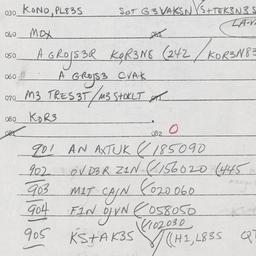 030 KONO, PL83S SOT G3VAKSN S+TEK3N3S
040 MDX
050 A GROJS3R KOR3N8 (242 / KOR3N83
060 A GROJS3 CVAK
070 M3 TRES3T / M3 S+OKLT
080 KOR3
082 0
901 AN AXTUK (185090
902 OVD3R Z1N (156020 (445
903 M1T CAJN (020060
904 F1N OJVN (058050
905 KS+AK3S (102030 (H1, L83S